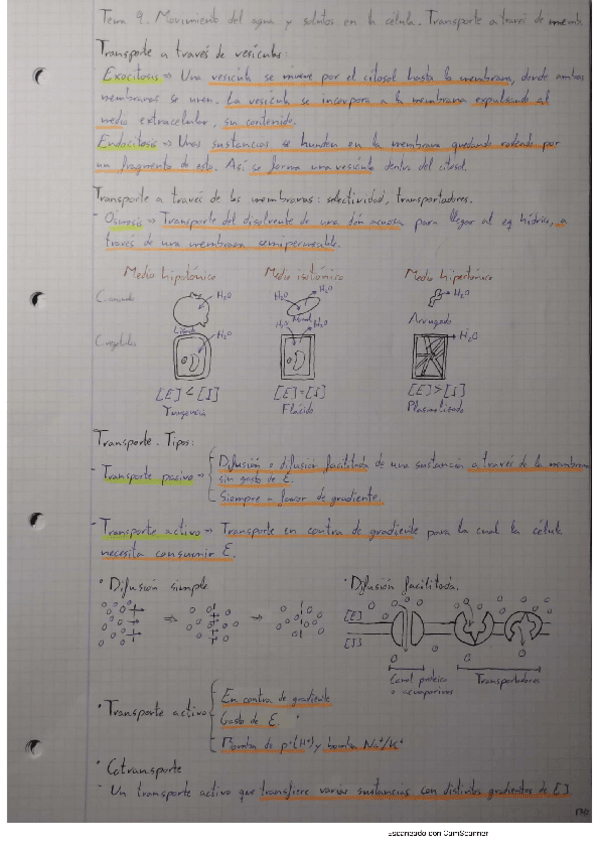 Tema 9. Movimiento del agua y solutos en la célula. Transporte a través de memb.
Transporte a través de vesículas:
Exocitosis → Una vesícula se mueve por el citosol hasta la membrana, donde ambas
membranas se unen. La vesícula se incorpora a la membrana expulsando al
medio extracelular, su contenido.
Endocitosis → Unas sustancias se hunden en la membrana quedando rodeada por
un fragmento de esta. Así se forma una vesícula dentro del citosol.
Transporte a través de las membranas: selectividad, transportadores.
- Osmosis → Transporte del disolvente de una dón acuosa para llegar al eq hídrico, a
través de una membrana semipermeable.
Medio hipotónico Medio isotónico Medio hipertónico
C. animales H2O H2O H2O H2O
Normal Arrugado
C. vegetales H2O H2O H2O H2O
[E] < [I] [E]=[I] [E] > [I]
Turgencia Flácido Plasmolizado
Transporte. Tipos:
- Transporte pasivo → Difusión o difusión facilitada de una sustancia a través de la membrana
sin gasto de E.
Siempre a favor de gradiente.
- Transporte activo → Transporte en contra de gradiente para la cual la célula
necesita consumir E.
• Difusión simple • Difusión facilitada.
[E]
[I]
Canal proteico Transportadores
o acuaporinas
• Transporte activo En contra de gradiente
Gasto de E
Bomba de p+(H+) y bomba Na+/K+
• Cotransporte
- Un transporte activo que transfiere varias sustancias con distintos gradientes de [ ]
Escaneado con CamScanner